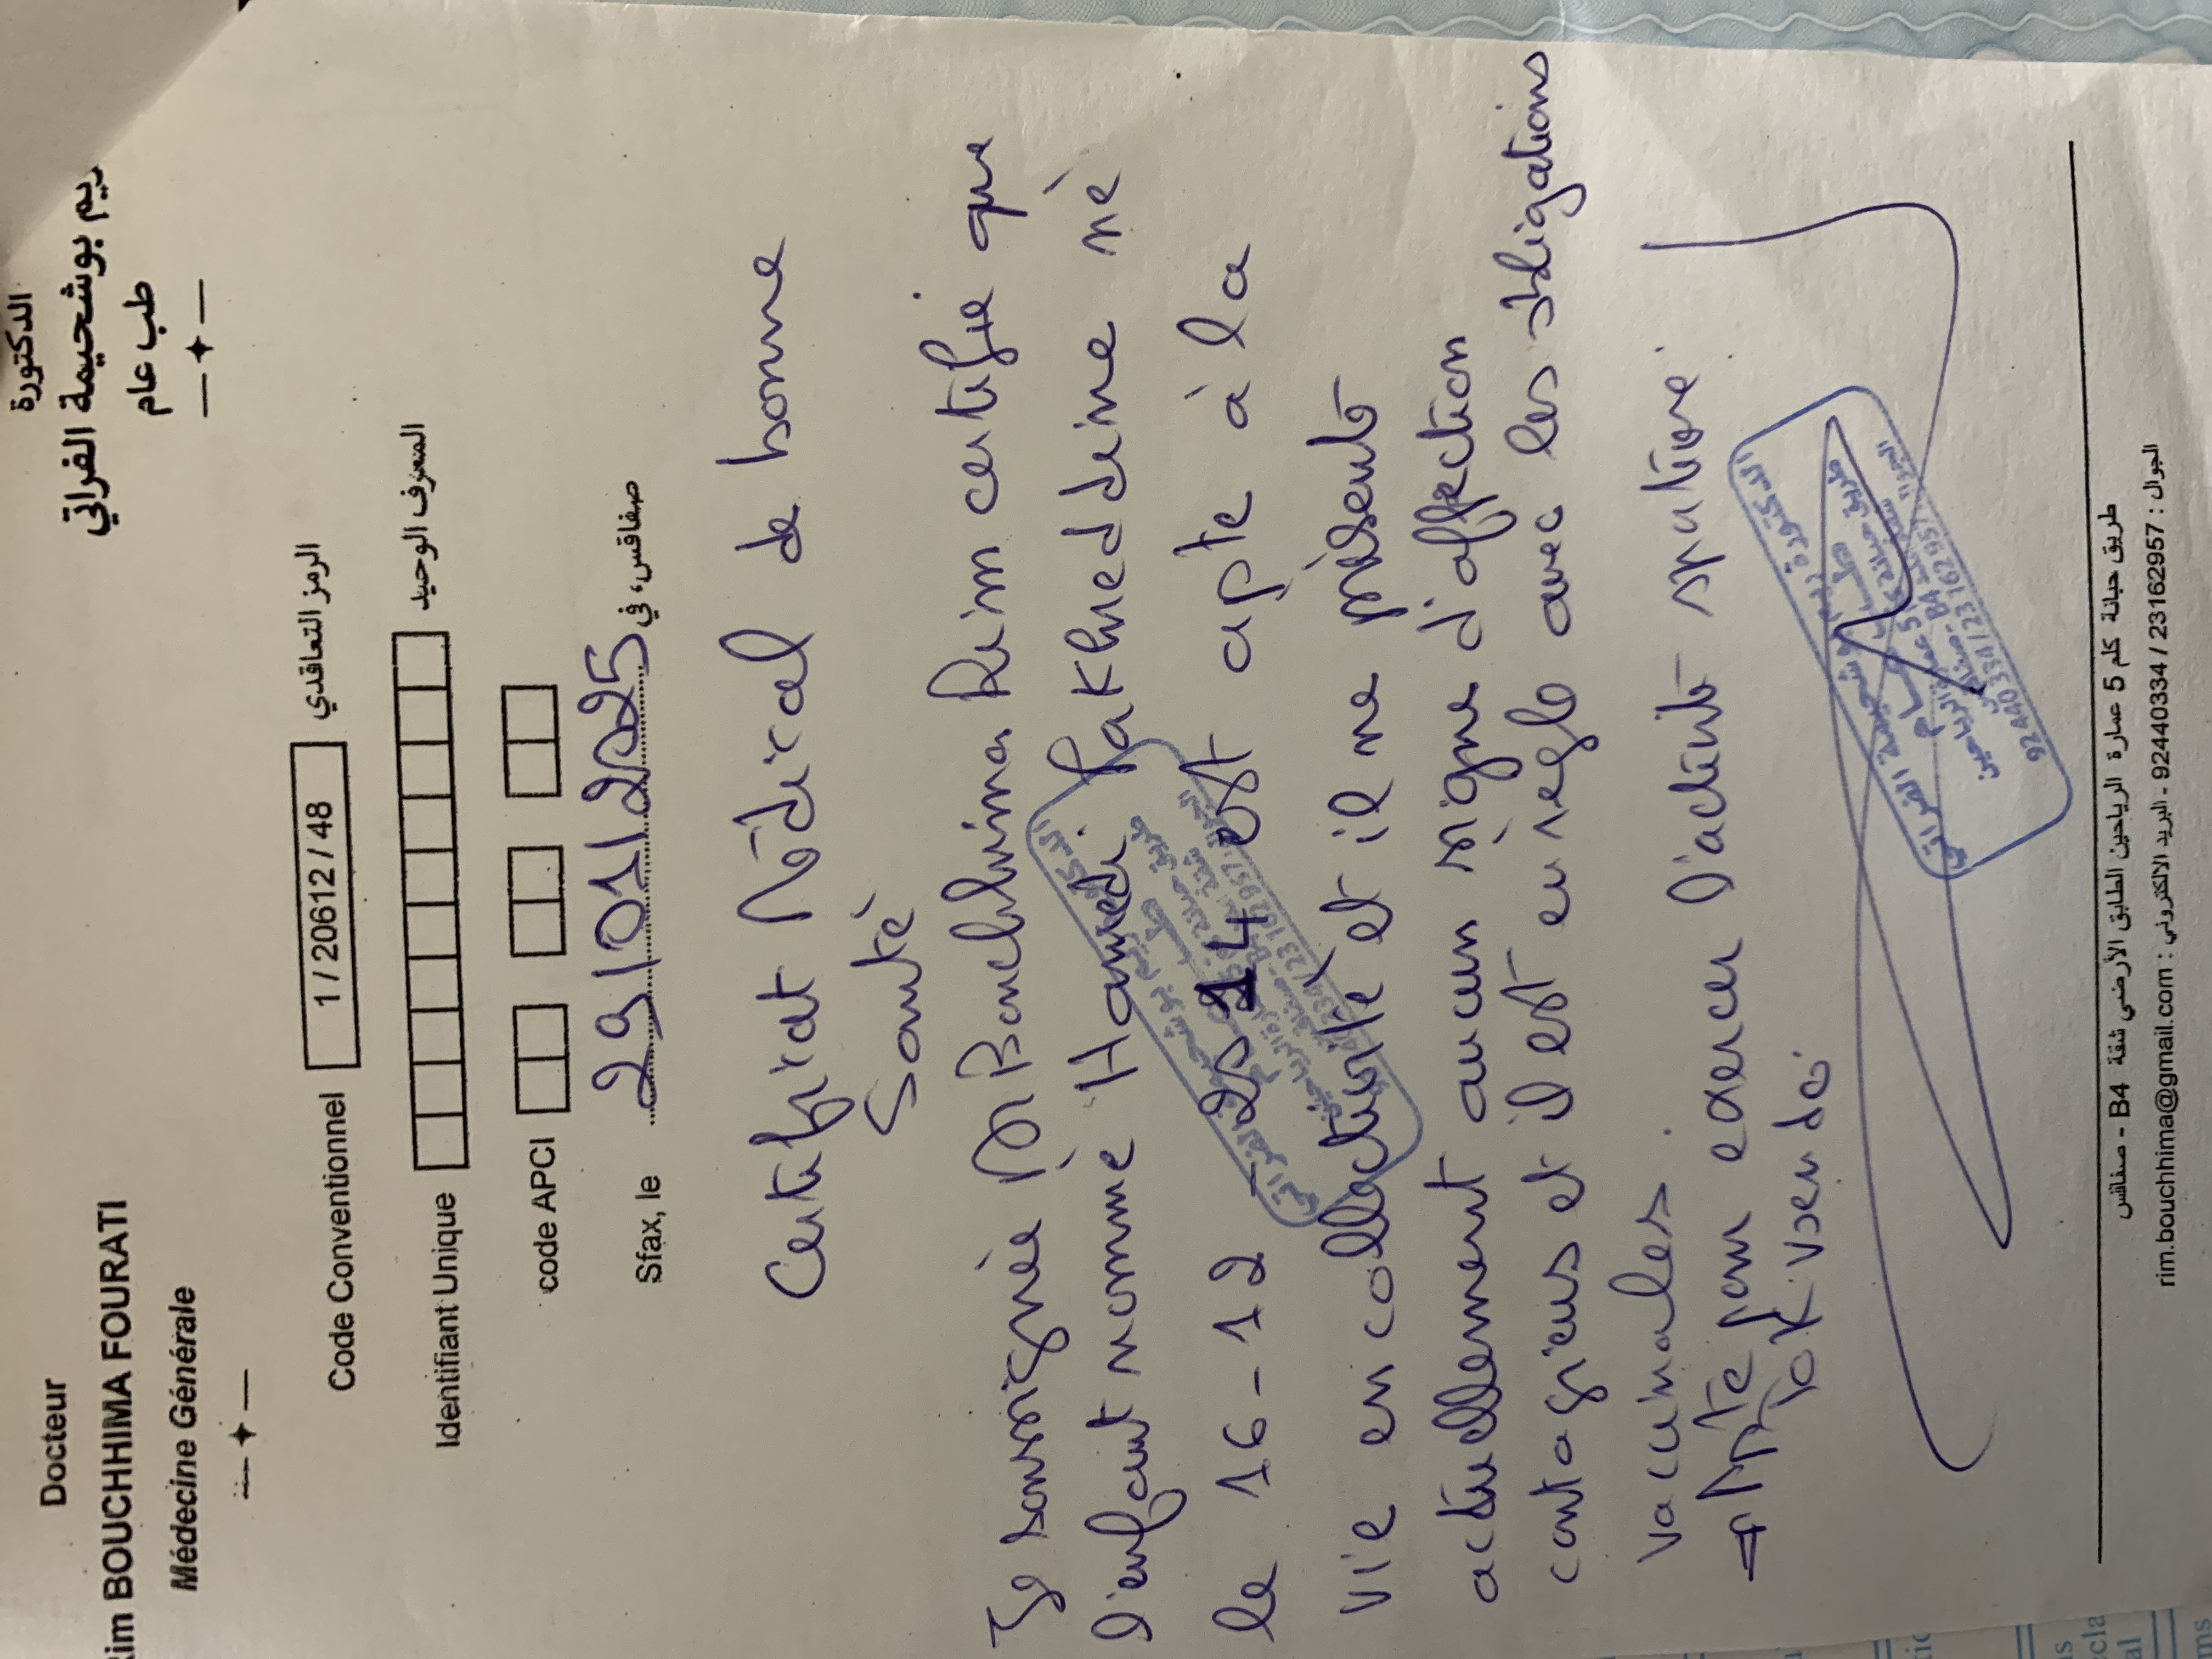 Docteur
Rim BOUCHHIMA FOURATI
Médecine Générale
الدكتورة
ريم بوشحيمة الفراتي
طب عام
Code Conventionnel 1 / 20612 / 48 الرمز التعاقدي
Identifiant Unique المعرف الوحيد
code APCI
Sfax, le 29/01/2025 صفاقس، في
Certificat Médical de bonne
Santé
Je soussignée Dr Bouchhima Rim certifie que
l'enfant nommé Hamedi Fakhreddine né
le 16-12 2014 est apte à la
vie en collectivité et il ne présente
actuellement aucun signe d'affection
contagieuse et il est en règle avec les obligations
vaccinales.
Apte pour exercer l'activité sportive
طريق حبانة كلم 5 عمارة الرياحين الطابق الأرضي شقة B4 - صفاقس
الجوال : 23162957 / 92440334 - البريد الالكتروني : rim.bouchhima@gmail.com